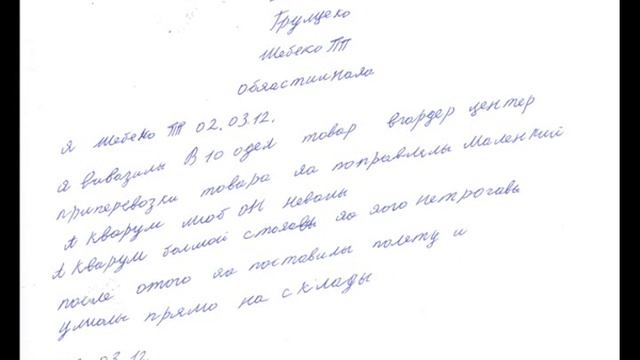 Грулщехо
Шебеко ПП
Обяастиинаяа
Я Шебеко ПП 02.03.12.
Я вивазилы В 10 одел товар вгардер центер
приперевозки товара яа поправлялы Маленкий
А кварум штоб он неваны
А кварум болмой стояавь яа яого нетрогавь
после отого яа поставилы полету и
ушолы прямо на склады
03.12.